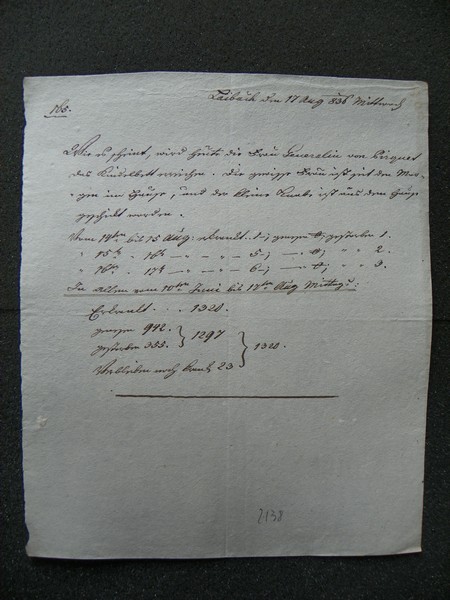 165.
Laibach den 17 Aug 836 Mittwoch
Wie es scheint, wird heute die Frau Generalin von Pirquet
das Kindelbett erreichen. Die gewisse Frau ist seit den Mor-
gen im Hause, und der kleine Knabe, ist aus dem Hause
geschickt worden.
Vom 14ten bis 15 Aug: erkrankt 1; genesen 4; gestorben 1.
" 15ten " 16ten — " — 5—; — " 4; " " 2.
" 16ten " 17ten — " — 6—; — " 4; " " 3.
In Allem vom 10ten Juni bis 17ten Aug Mittags:
Erkrankt . . 1320.
genesen 942.
gestorben 355. } 1297
Verbleiben noch krank 23 } 1320.
2138